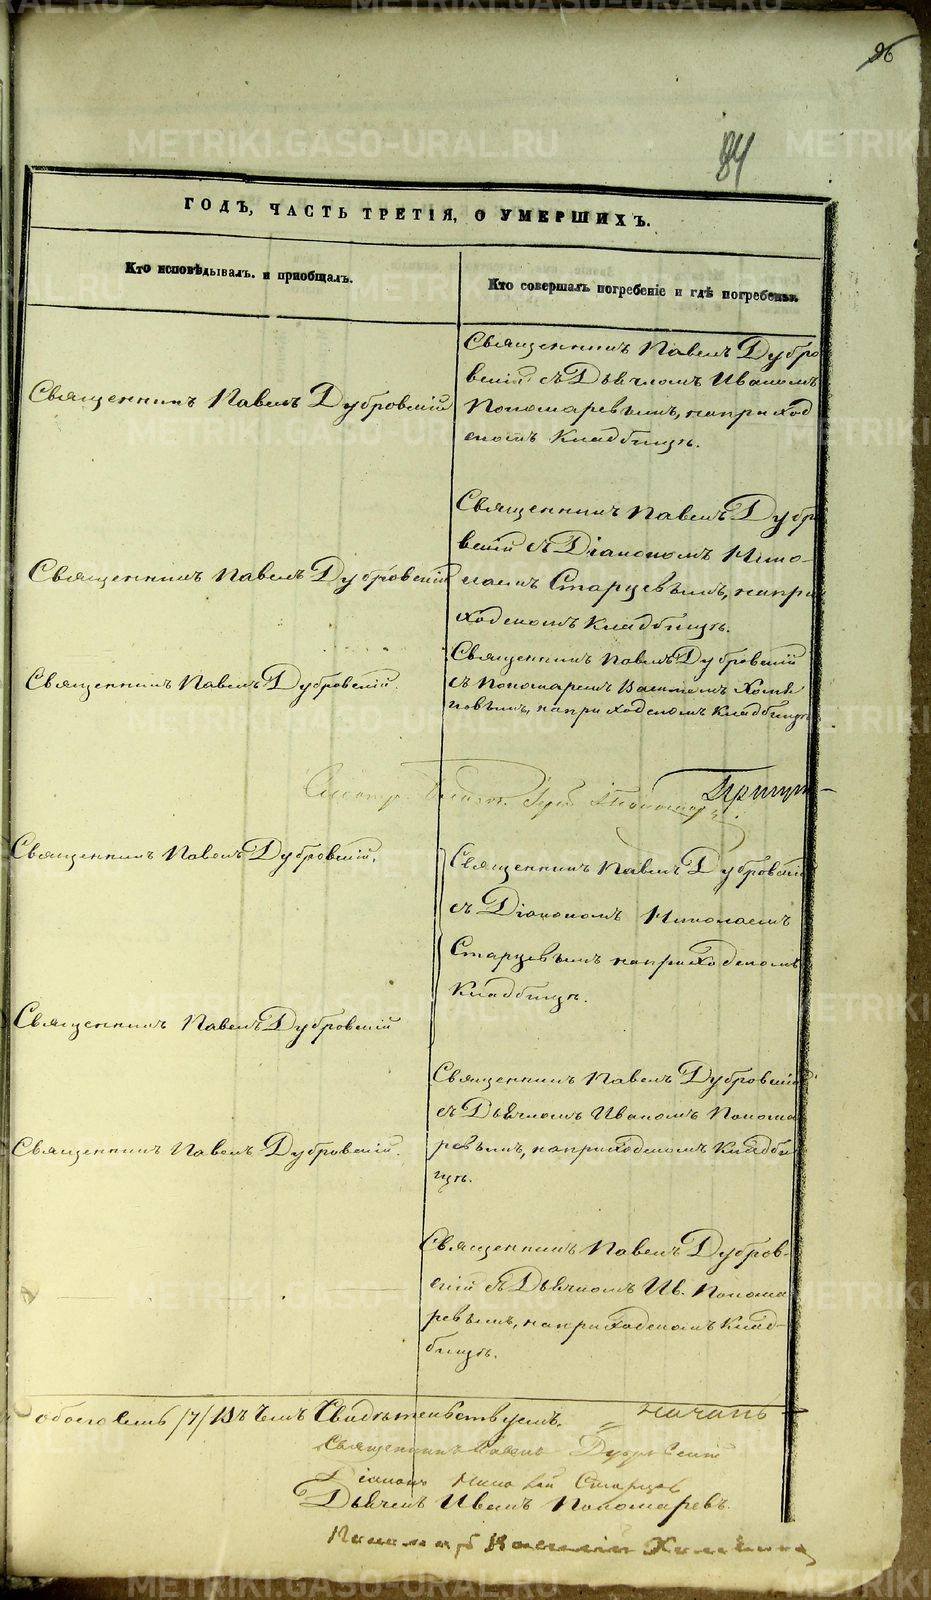 96
84
METRIKI.GASO-URAL.RU
ГОДЪ, ЧАСТЬ ТРЕТІЯ, О УМЕРШИХЪ.
Кто исповѣдывалъ и пріобщалъ.
Кто совершалъ погребеніе и гдѣ погребены.
Священникъ Павелъ Дубровскій
Священникъ Павелъ Дубро
вскій съ Дьячкомъ Иваномъ
Пономаревымъ, на приход
скомъ Кладбищѣ.
Священникъ Павелъ Дубровскій
Священникъ Павелъ Дубро
вскій съ Діакономъ Нико-
лаемъ Старцевымъ, на при
ходскомъ Кладбищѣ.
Священникъ Павелъ Дубровскій.
Священникъ Павелъ Дубровскій
съ Пономаремъ Васильемъ
на приходскомъ Кладбищѣ
Священникъ Павелъ Дубровскій.
Священникъ Павелъ Дубровскій
съ Діакономъ Николаемъ
Старцевымъ на приходскомъ
Кладбищѣ.
Священникъ Павелъ Дубровскій
Священникъ Павелъ Дубровскій.
Священникъ Павелъ Дубровскій
съ Дьячкомъ Иваномъ Понома
ревымъ, на приходскомъ Кладби
щѣ.
Священникъ Павелъ Дубров-
скій съ Дьячкомъ Ив. Понома
ревымъ, на приходскомъ Клад-
бищѣ.
обоего семь /7/ Въ чемъ Свидѣтельствуемъ.
Священникъ Павелъ Дубровскій
Діаконъ Николай Старцевъ
Дьячекъ Иванъ Пономаревъ.
Пономарь Василій